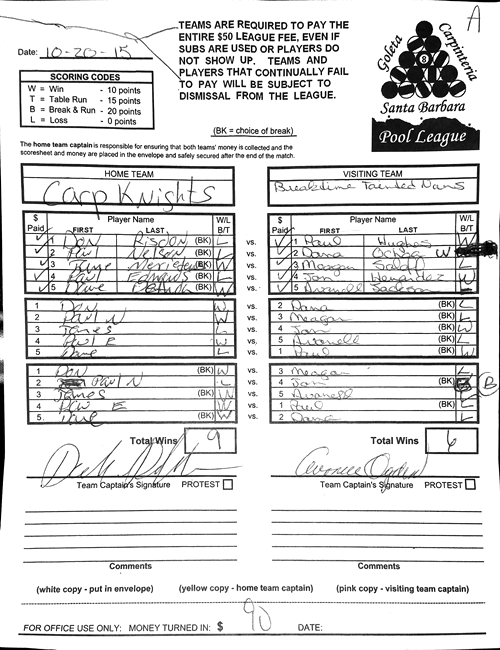 A
Date: 10-20-15
TEAMS ARE REQUIRED TO PAY THE
ENTIRE $50 LEAGUE FEE, EVEN IF
SUBS ARE USED OR PLAYERS DO
NOT SHOW UP. TEAMS AND
PLAYERS THAT CONTINUALLY FAIL
TO PAY WILL BE SUBJECT TO
DISMISSAL FROM THE LEAGUE.
(BK = choice of break)
SCORING CODES
W = Win - 10 points
T = Table Run - 15 points
B = Break & Run - 20 points
L = Loss - 0 points
Goleta
Carpinteria
8
Santa Barbara
Pool League
The home team captain is responsible for ensuring that both teams' money is collected and the
scoresheet and money are placed in the envelope and safely secured after the end of the match.
HOME TEAM
Carp Knights
VISITING TEAM
Breaktime Tainted Nuns
$ Paid Player Name FIRST LAST W/L B/T
$ Paid Player Name FIRST LAST W/L B/T
1 Don (BK) L vs. 1 Paul Hughes W
2 Paul Nelson (BK) L vs. 2 Dana Ochoa W
3 (BK) W vs. 3 Meagan L
4 Paul Edwards (BK) L vs. 4 Jan Hernandez W
5 Dave (BK) W vs. 5 Avonell Jackson L
1 Don W vs. 2 Dana (BK) L
2 Paul N W vs. 3 Meagan (BK) L
3 James L vs. 4 Jan (BK) W
4 Paul E W vs. 5 Avonell (BK) L
5 Dave L vs. 1 Paul (BK) W
1 Don (BK) W vs. 3 Meagan L
2 Paul N L vs. 4 Jan (BK) B
3 James (BK) W vs. 5 Avonell L
4 Paul E W vs. 1 Paul (BK) L
5. Dave (BK) W vs. 2 Dana L
Total Wins 9
Total Wins 6
Team Captain's Signature PROTEST
Avonell Ogden
Team Captain's Signature PROTEST
Comments
Comments
(white copy - put in envelope) (yellow copy - home team captain) (pink copy - visiting team captain)
FOR OFFICE USE ONLY: MONEY TURNED IN: $ 90 DATE: